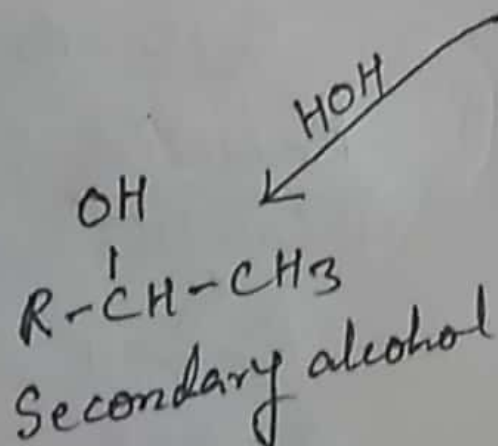 HOH
OH
R-CH-CH3
Secondary alcohol